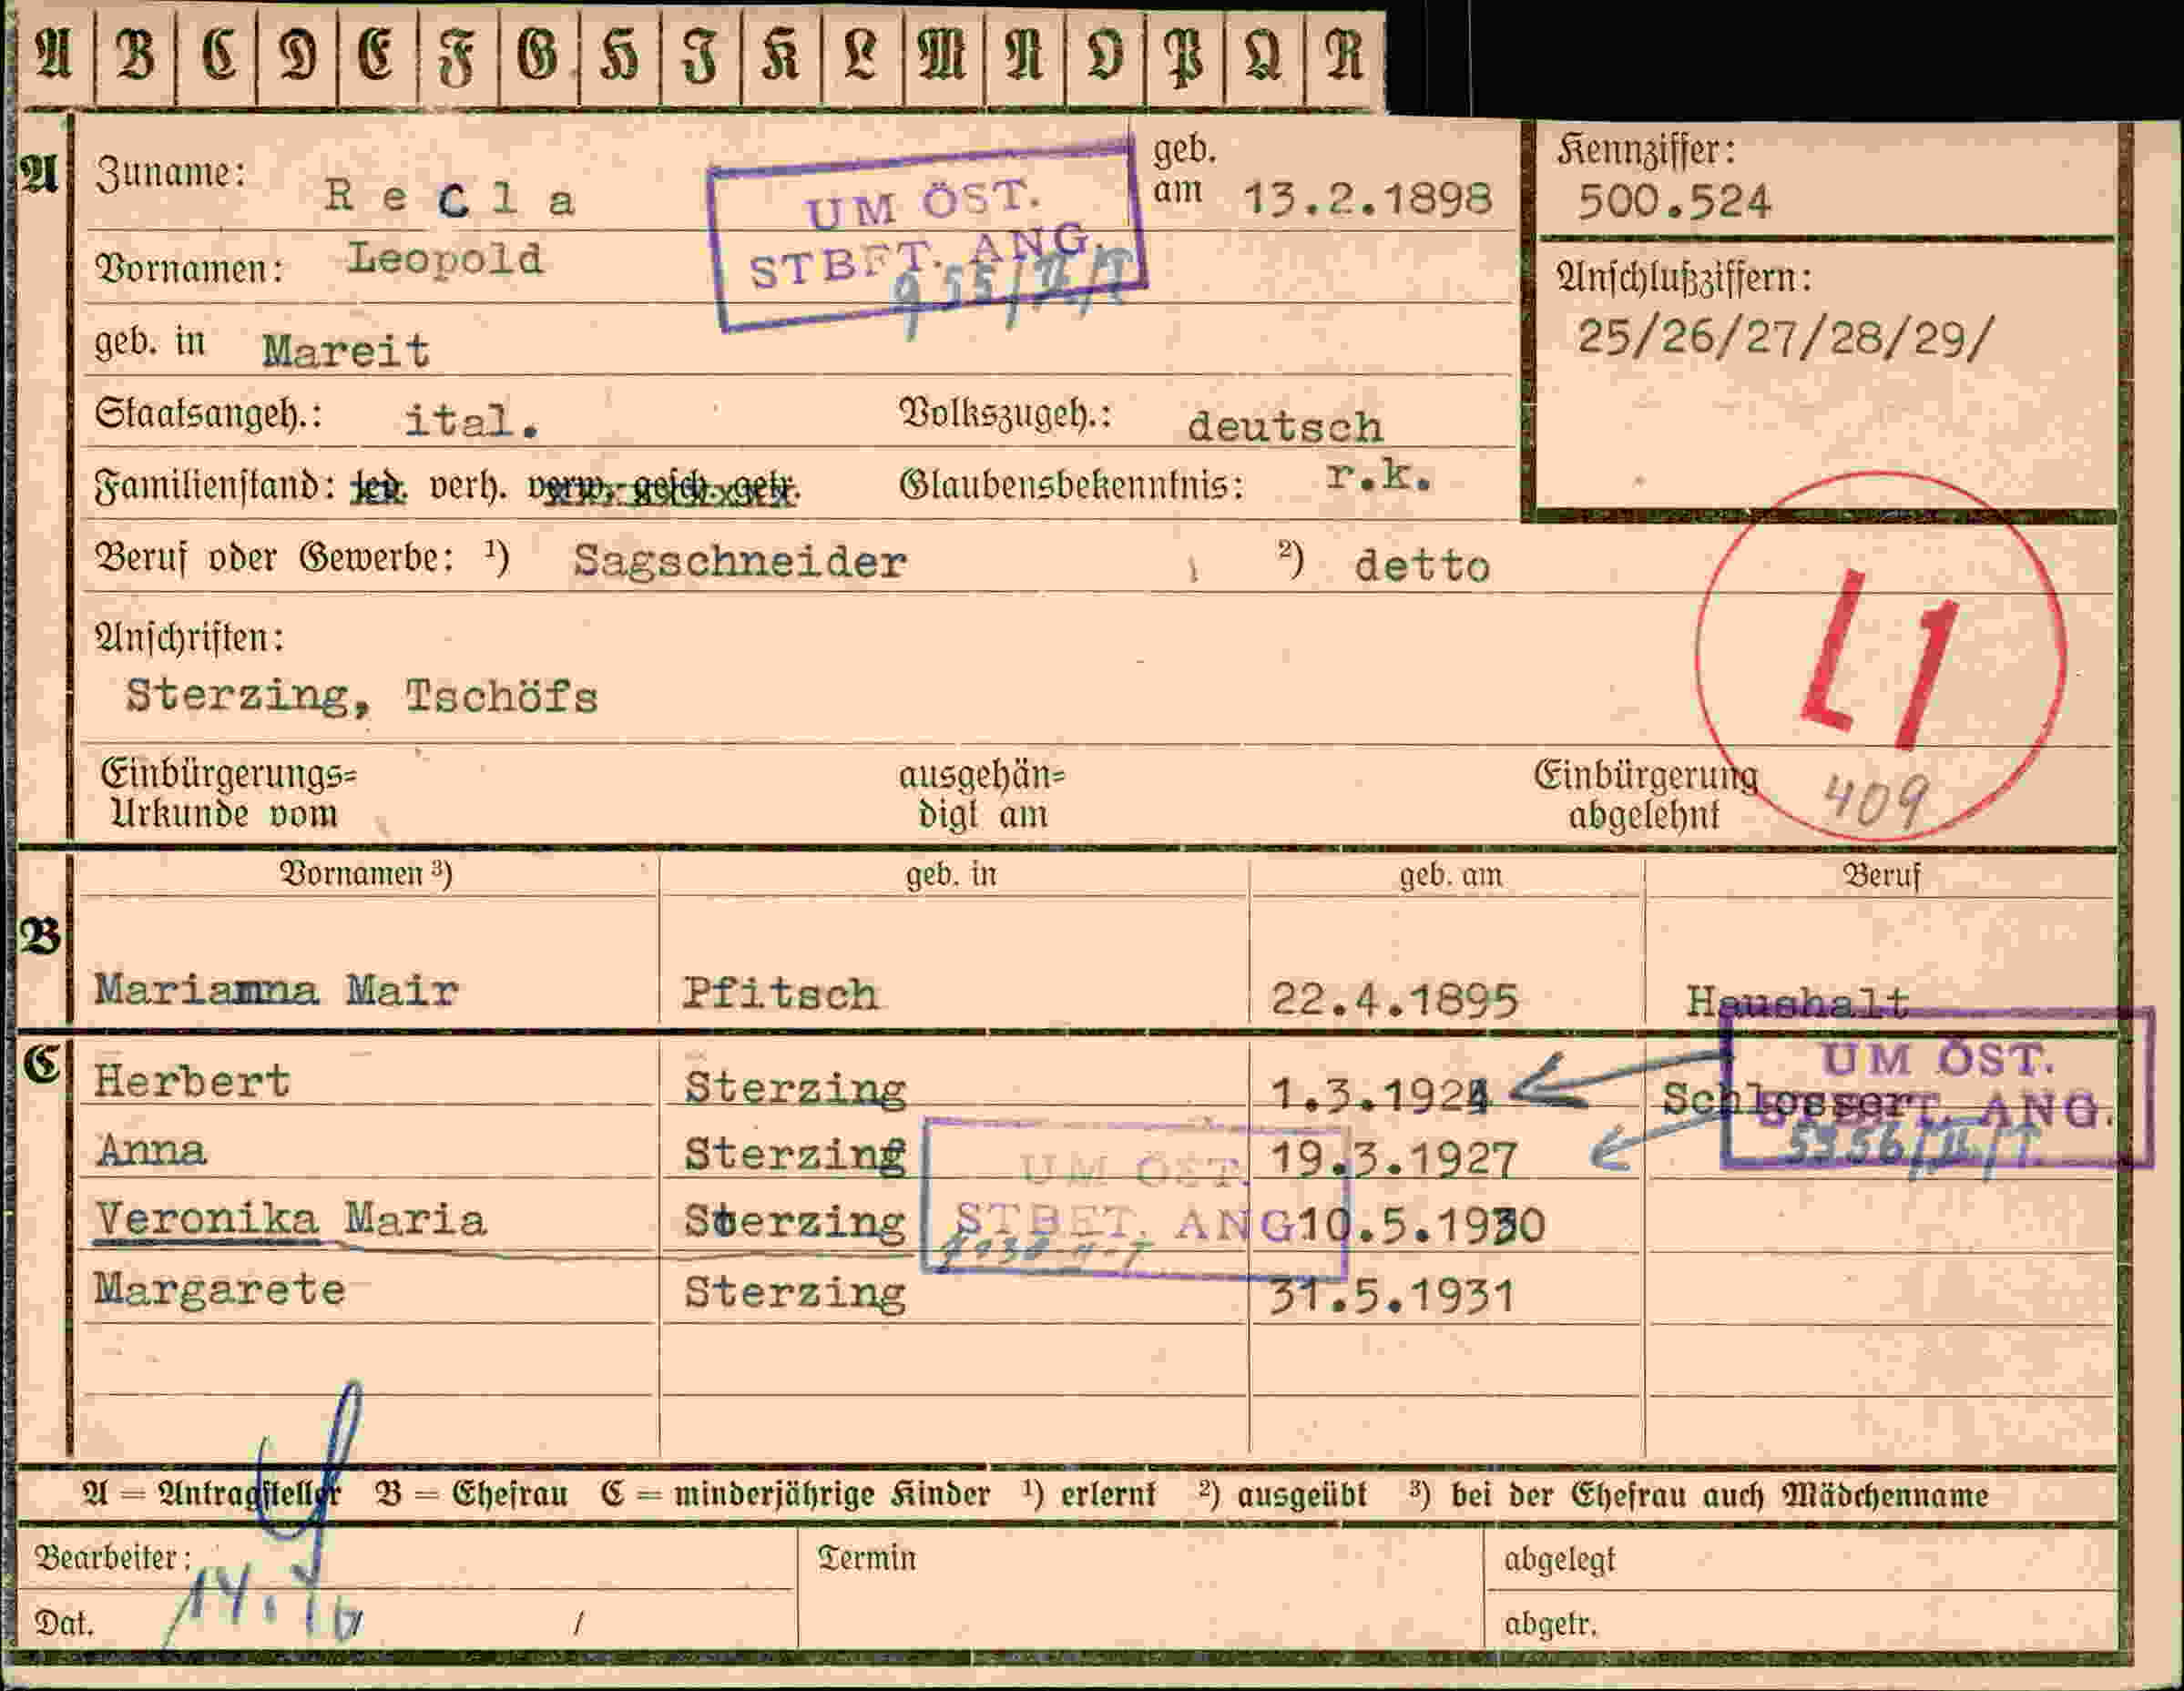 A B C D E F G H J K L M N O P Q R
A
Zuname: Recla
geb. am 13.2.1898
UM ÖST.
STBET. ANG.
955/II/T
Kennziffer:
500.524
Vornamen: Leopold
Anschlußziffern:
25/26/27/28/29/
geb. in Mareit
Staatsangeh.: ital. Volkszugeh.: deutsch
Familienstand: led. verh. verw. gesch. getr. Glaubensbekenntnis: r.k.
Beruf oder Gewerbe: ¹) Sagschneider ²) detto
L1
Anschriften:
Sterzing, Tschöfs
Einbürgerungs= ausgehän= Einbürgerung
Urkunde vom digt am abgelehnt
409
Vornamen ³) geb. in geb. am Beruf
B
Marianna Mair Pfitsch 22.4.1895 Haushalt
C
Herbert Sterzing 1.3.1924 Schlosser
UM ÖST.
STBET. ANG.
5356/II/T.
Anna Sterzing 19.3.1927
UM ÖST.
STBET. ANG
Veronika Maria Sterzing 10.5.1930
Margarete Sterzing 31.5.1931
A = Antragsteller B = Ehefrau C = minderjährige Kinder ¹) erlernt ²) ausgeübt ³) bei der Ehefrau auch Mädchenname
Bearbeiter: Termin abgelegt
Dat. / / abgetr.